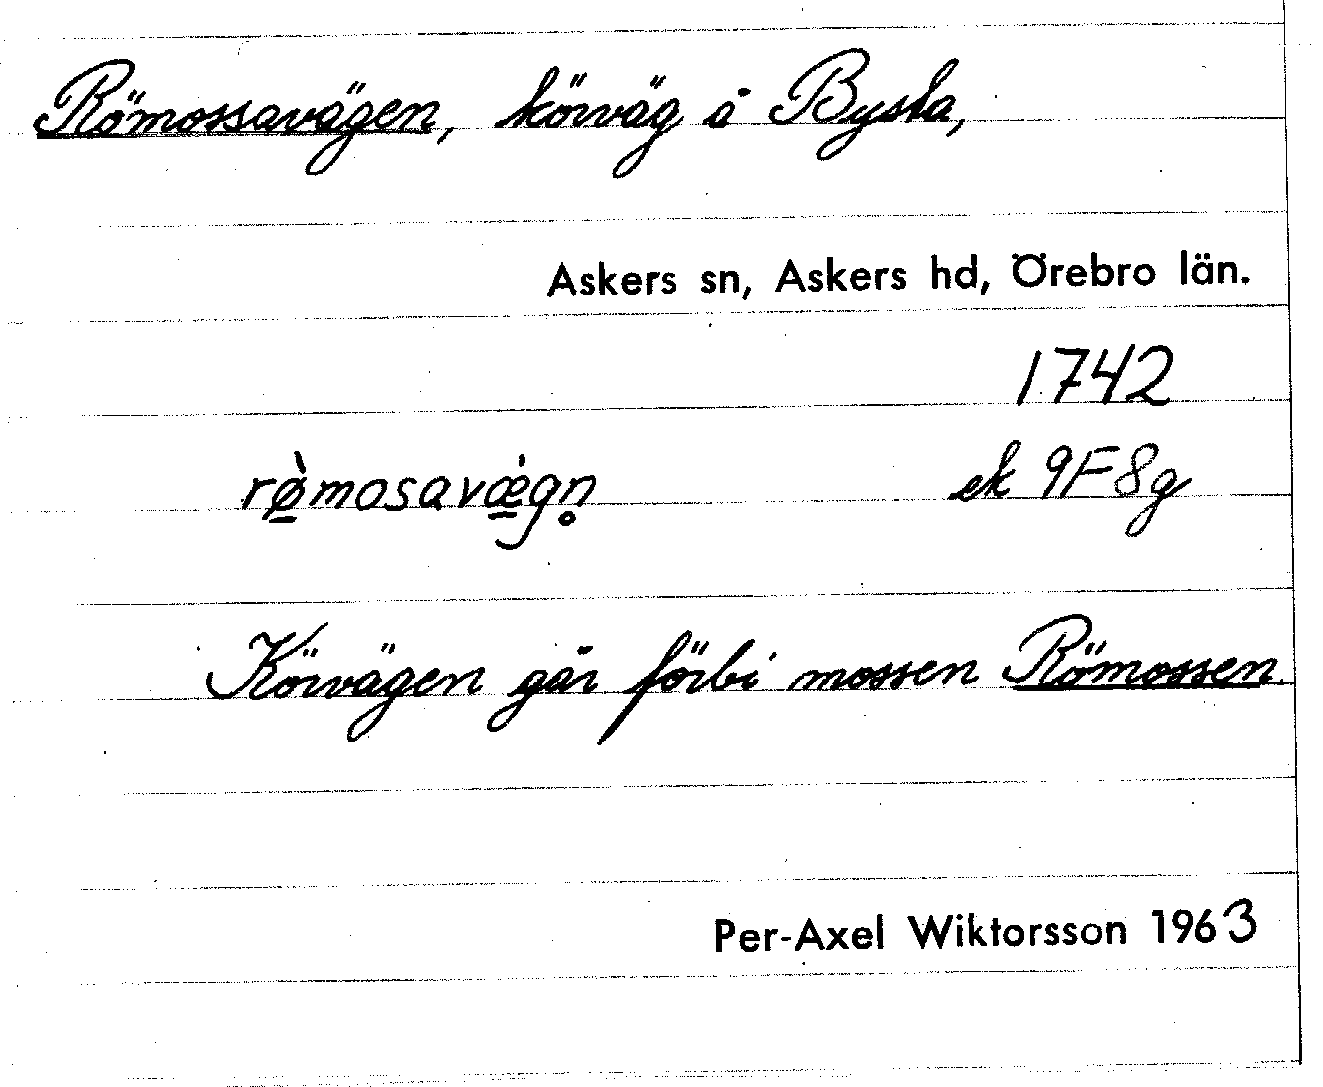 Römossavägen, körväg å Bysta,
Askers sn, Askers hd, Örebro län.
1742
rø̀mosavǽgn̥ ek 9F8g
Körvägen går förbi mossen Römossen
Per-Axel Wiktorsson 1963